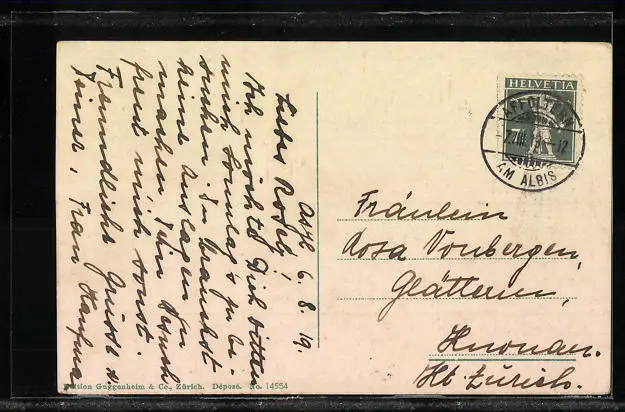 Asyl 6. 8. 19.
Liebes Roseli,
Ich möchte Dich bitten
mich Sonntags zu be-
suchen. Du brauchst
keine Auslagen zu
machen Dein Besuch
freut mich sonst.
Freundliche Grüsse v.
Deiner, Frau
HELVETIA
7½
AFFOLTERN
AM ALBIS
Fräulein
Rosa Vonbergen,
Glätterin,
Knonau.
Kt Zürich.
Edition Guggenheim & Co., Zürich. Déposé. No. 14554